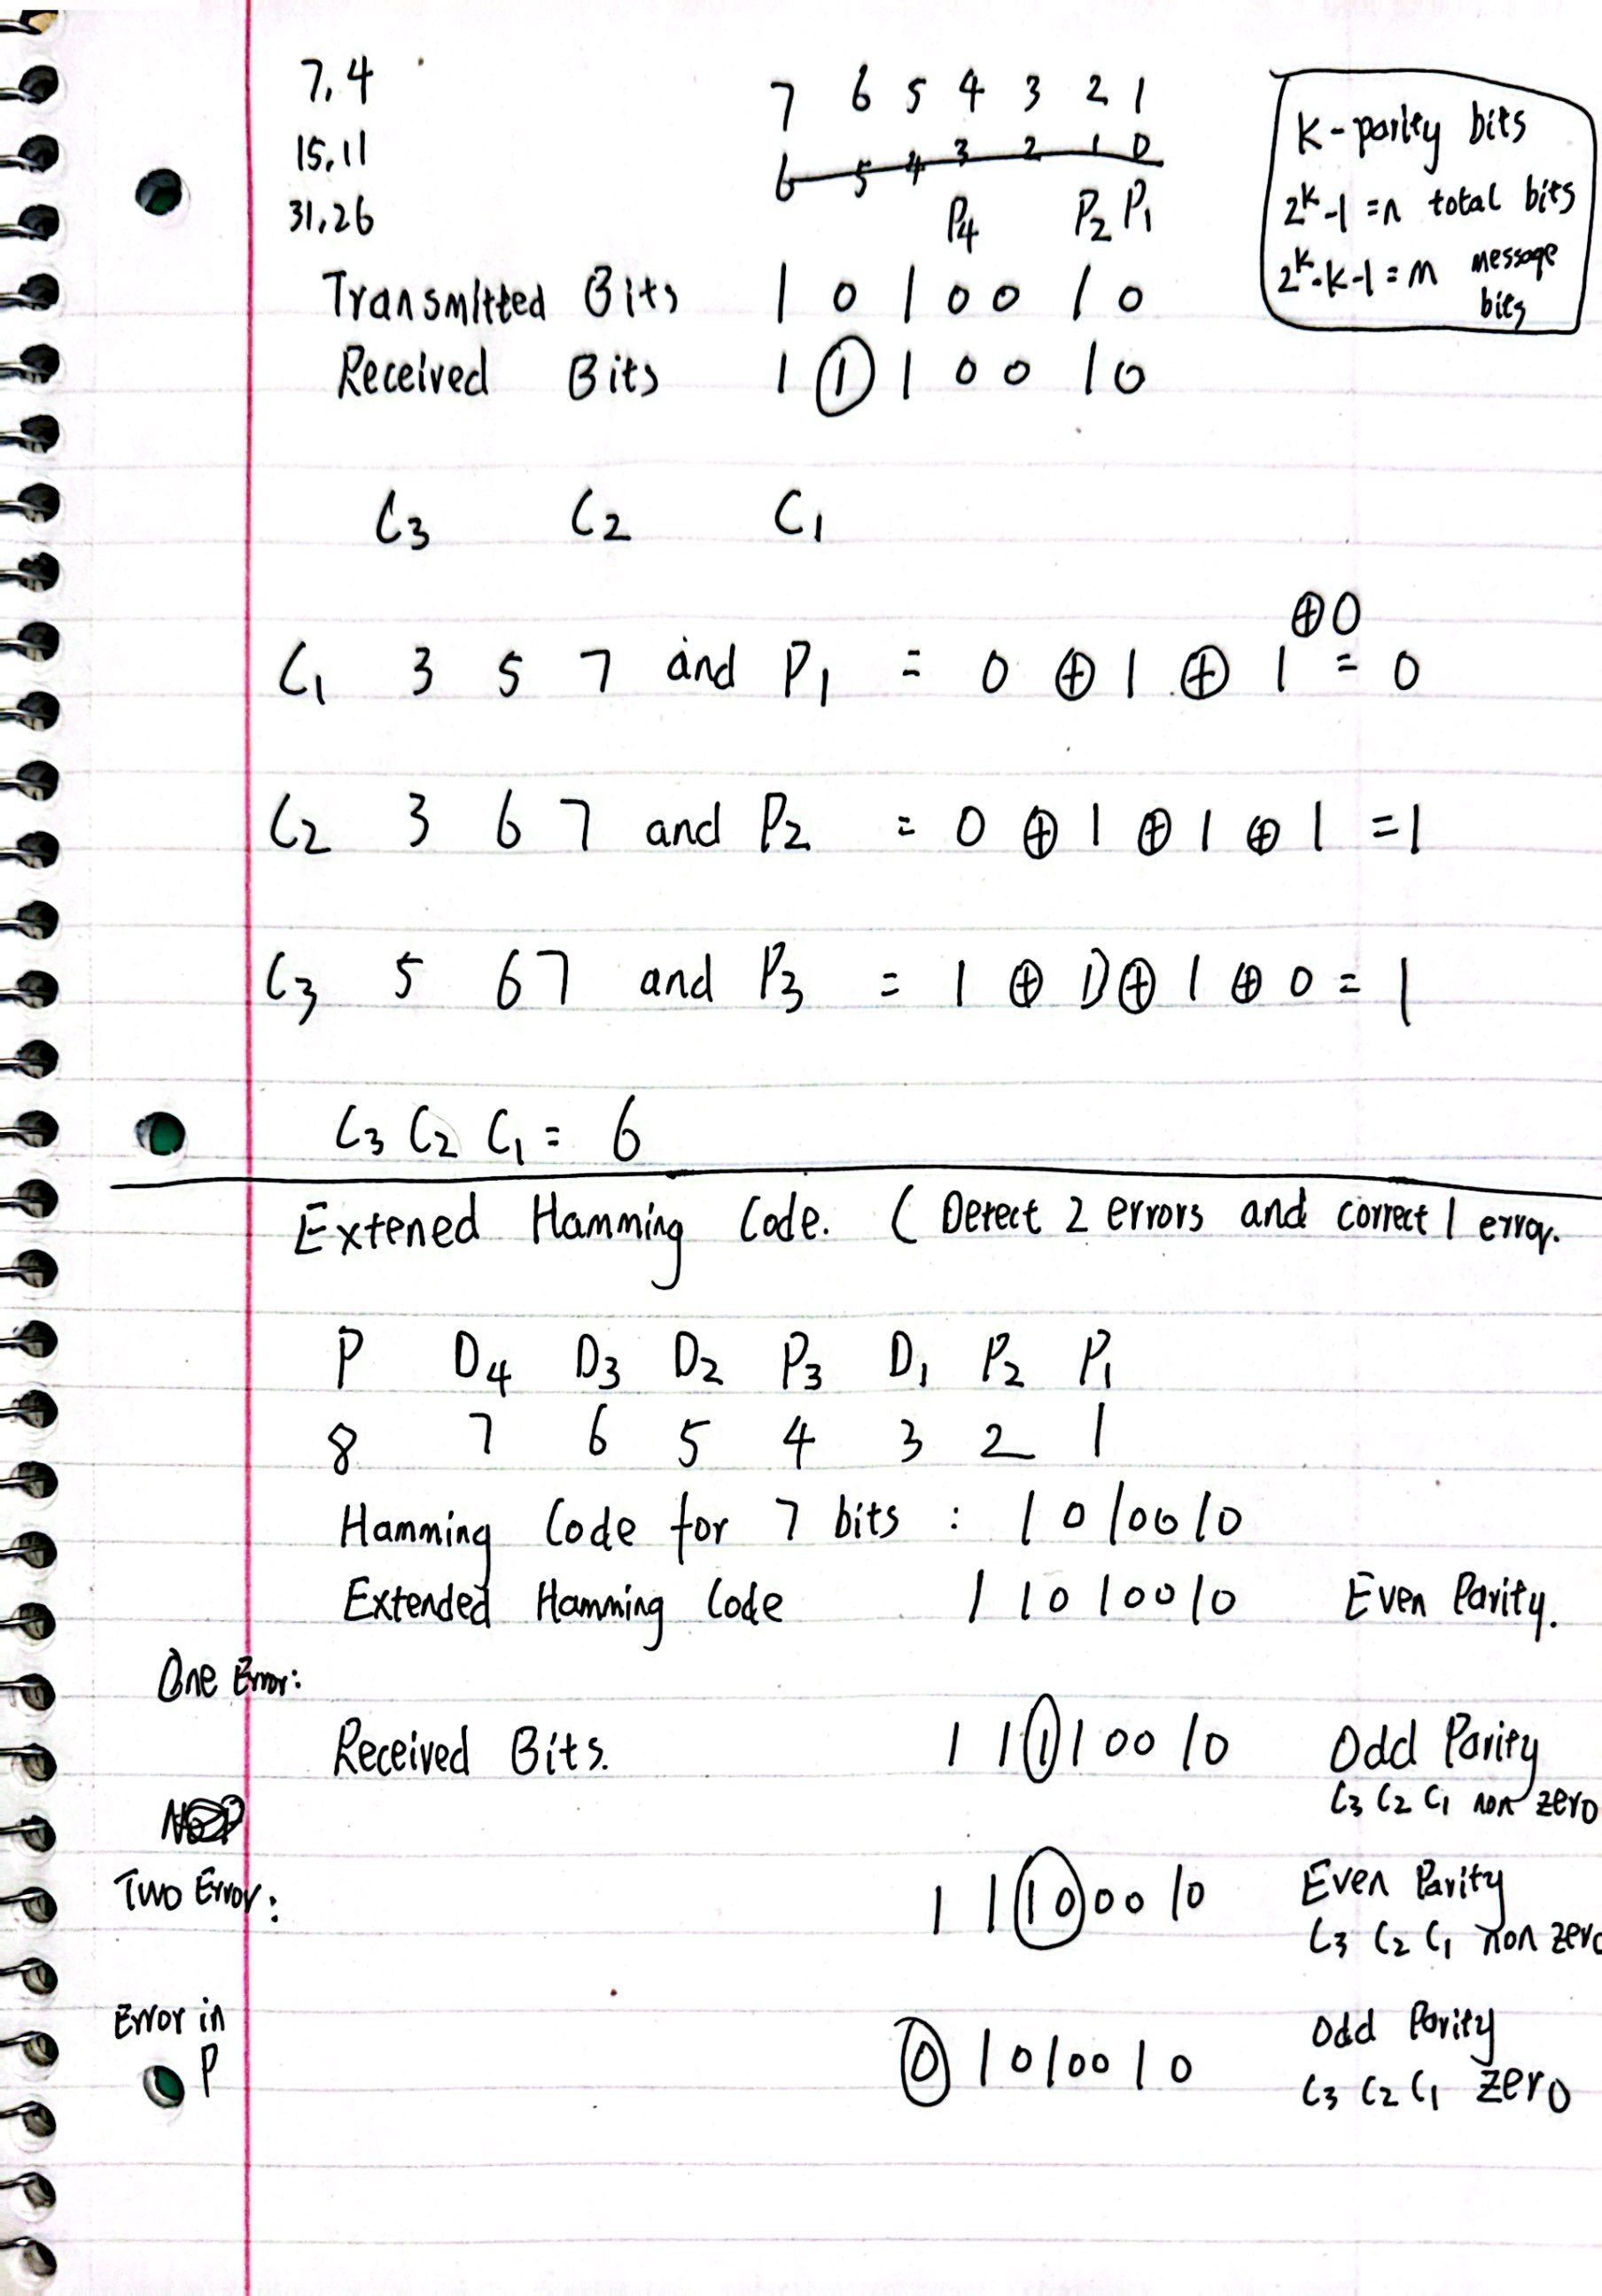 7,4
15,11
31,26
7 6 5 4 3 2 1
6 5 4 3 2 1 0
P4 P2 P1
K-parity bits
2^K-1=n total bits
2^K-K-1=m message bits
Transmitted Bits 1 0 1 0 0 1 0
Received Bits 1 1 1 0 0 1 0
C3 C2 C1
⊕0
C1 3 5 7 and P1 = 0 ⊕ 1 ⊕ 1 = 0
C2 3 6 7 and P2 = 0 ⊕ 1 ⊕ 1 ⊕ 1 = 1
C3 5 6 7 and P3 = 1 ⊕ 1 ⊕ 1 ⊕ 0 = 1
C3 C2 C1 = 6
Extened Hamming Code. ( Detect 2 errors and correct 1 error.
P D4 D3 D2 P3 D1 P2 P1
8 7 6 5 4 3 2 1
Hamming Code for 7 bits : 1 0 1 0 0 1 0
Extended Hamming Code 1 1 0 1 0 0 1 0 Even Parity.
One Error:
Received Bits. 1 1 1 1 0 0 1 0 Odd Parity
C3 C2 C1 non zero
Two Error: 1 1 1 0 0 0 1 0 Even Parity
C3 C2 C1 non zero
Error in P 0 1 0 1 0 0 1 0 Odd Parity
C3 C2 C1 zero